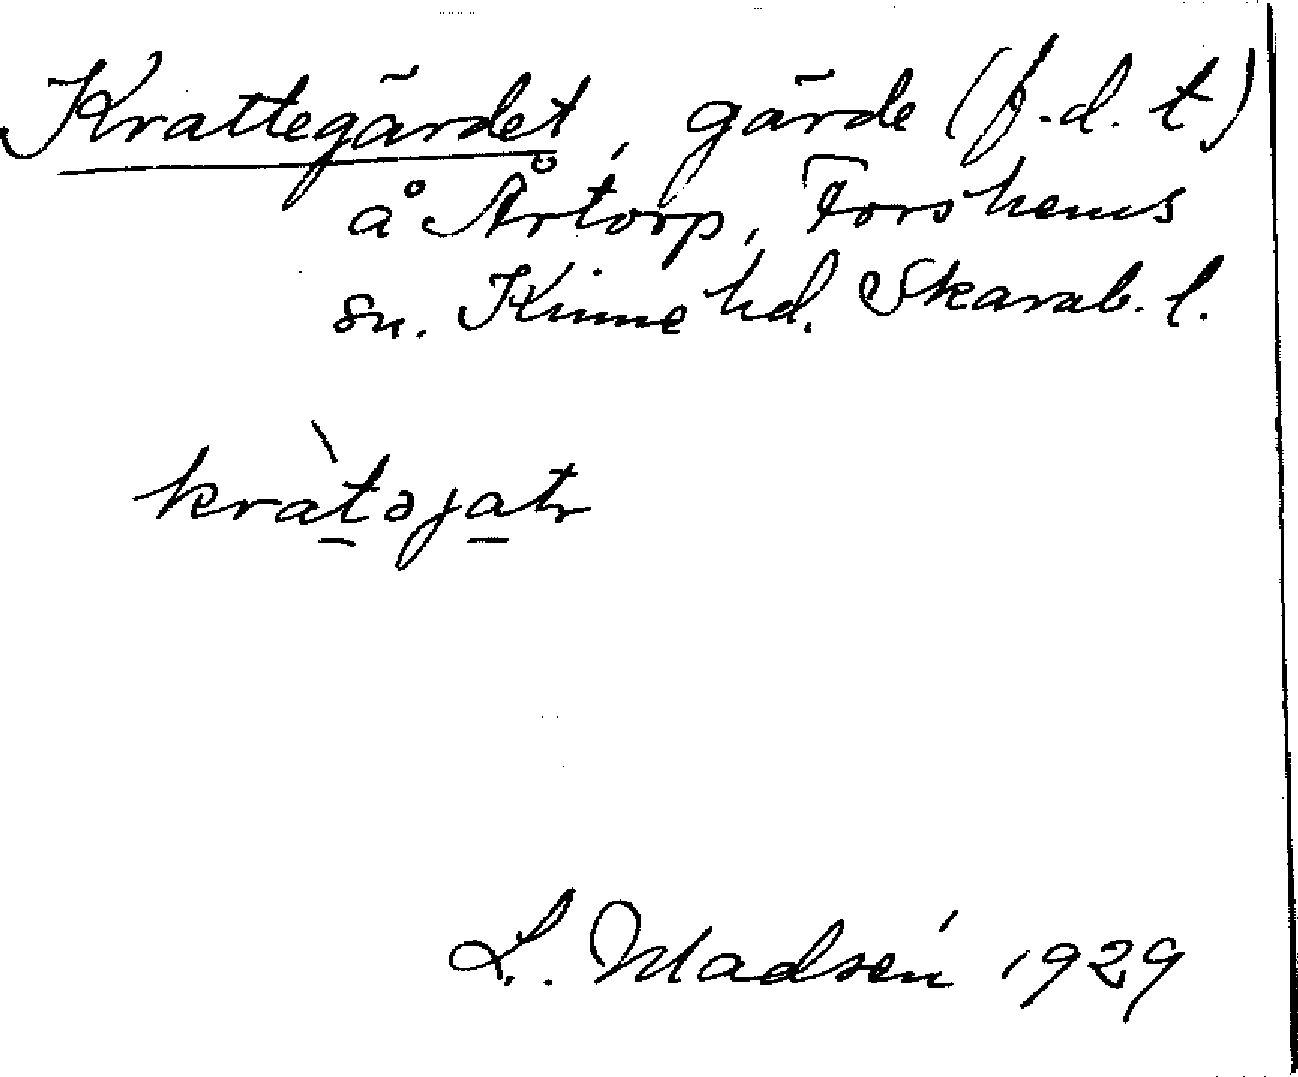 Krattegärdet, gärde (f.d. t.)
å Årtorp, Forshems
sn. Kinne hd. Skarab. l.
kràtəjatr
L. Madsén 1929